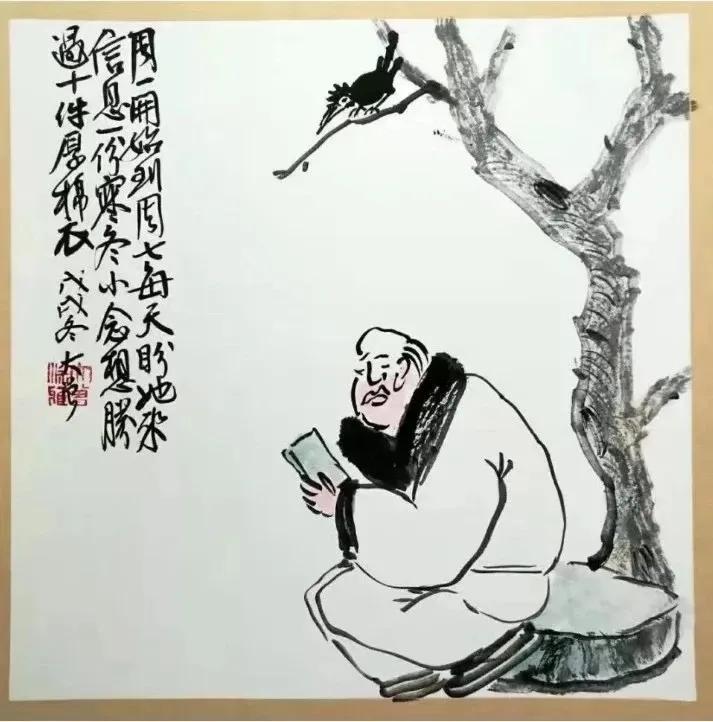 周一开始到周七每天盼她来
信息一份寒冬小念想勝
過十件厚棉衣 戊戌冬 大